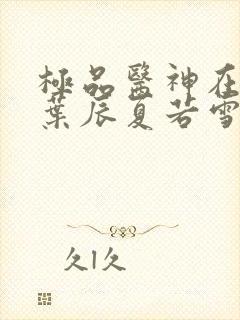 極品醫神在
葉辰夏若雪
久久